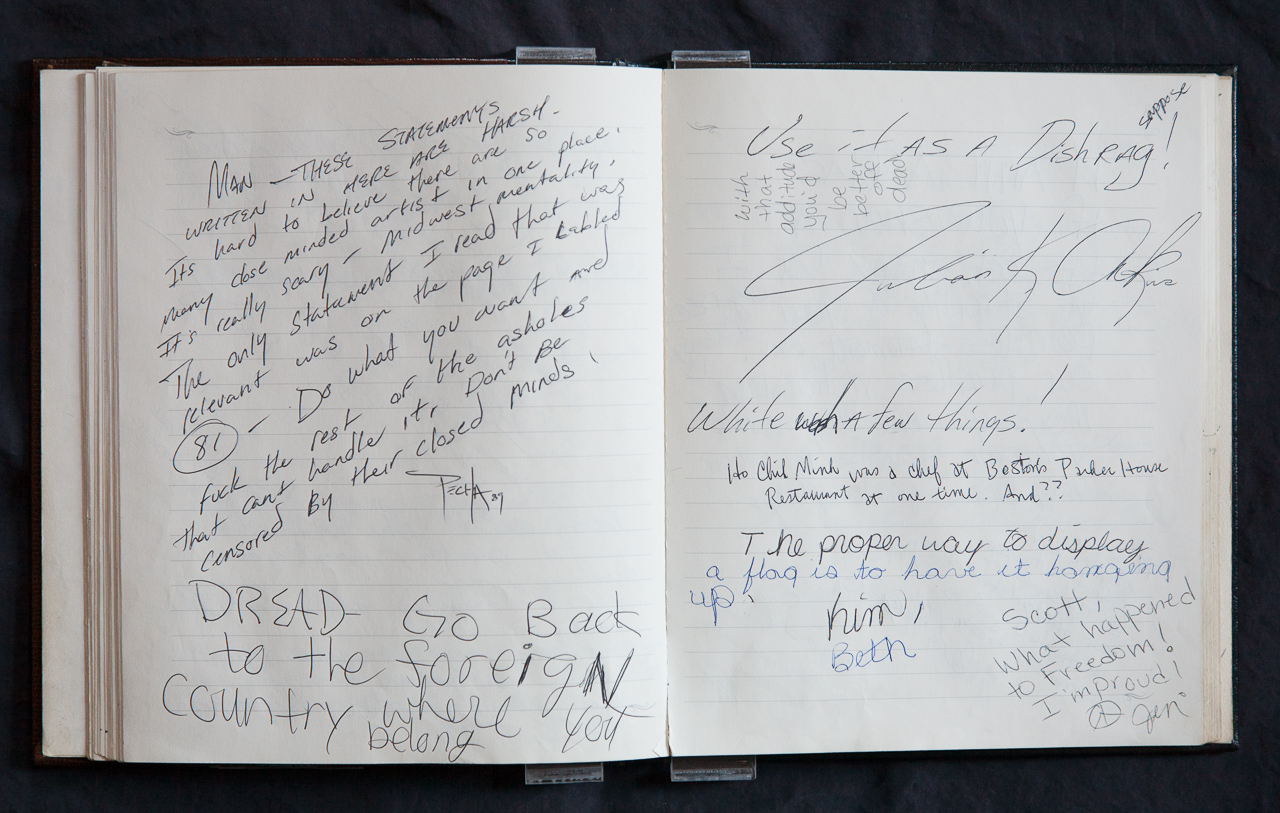 MAN — THESE STATEMENTS
WRITTEN IN HERE ARE HARSH.
Its hard to believe there are so
many close minded artist in one place.
It's really scary — Midwest mentality.
The only statement I read that was
relevant was on the page I labled
81 — Do what you want and
fuck the rest of the assholes
that can't handle it, Don't Be
censored By their closed minds.
DREAD — Go Back
to the foreign
Country where you
belong
suppose
Use it AS A DishRAg!
with
that
additude
you'd
be
better
off
dead
White with A few things!
Ho Chih Minh was a chef at Boston's Parker House
Restaurant at one time. And??
The proper way to display
a flag is to have it hanging
up.
Kim,
Beth
Scott,
What happened
to Freedom!
I'm proud!
Jen